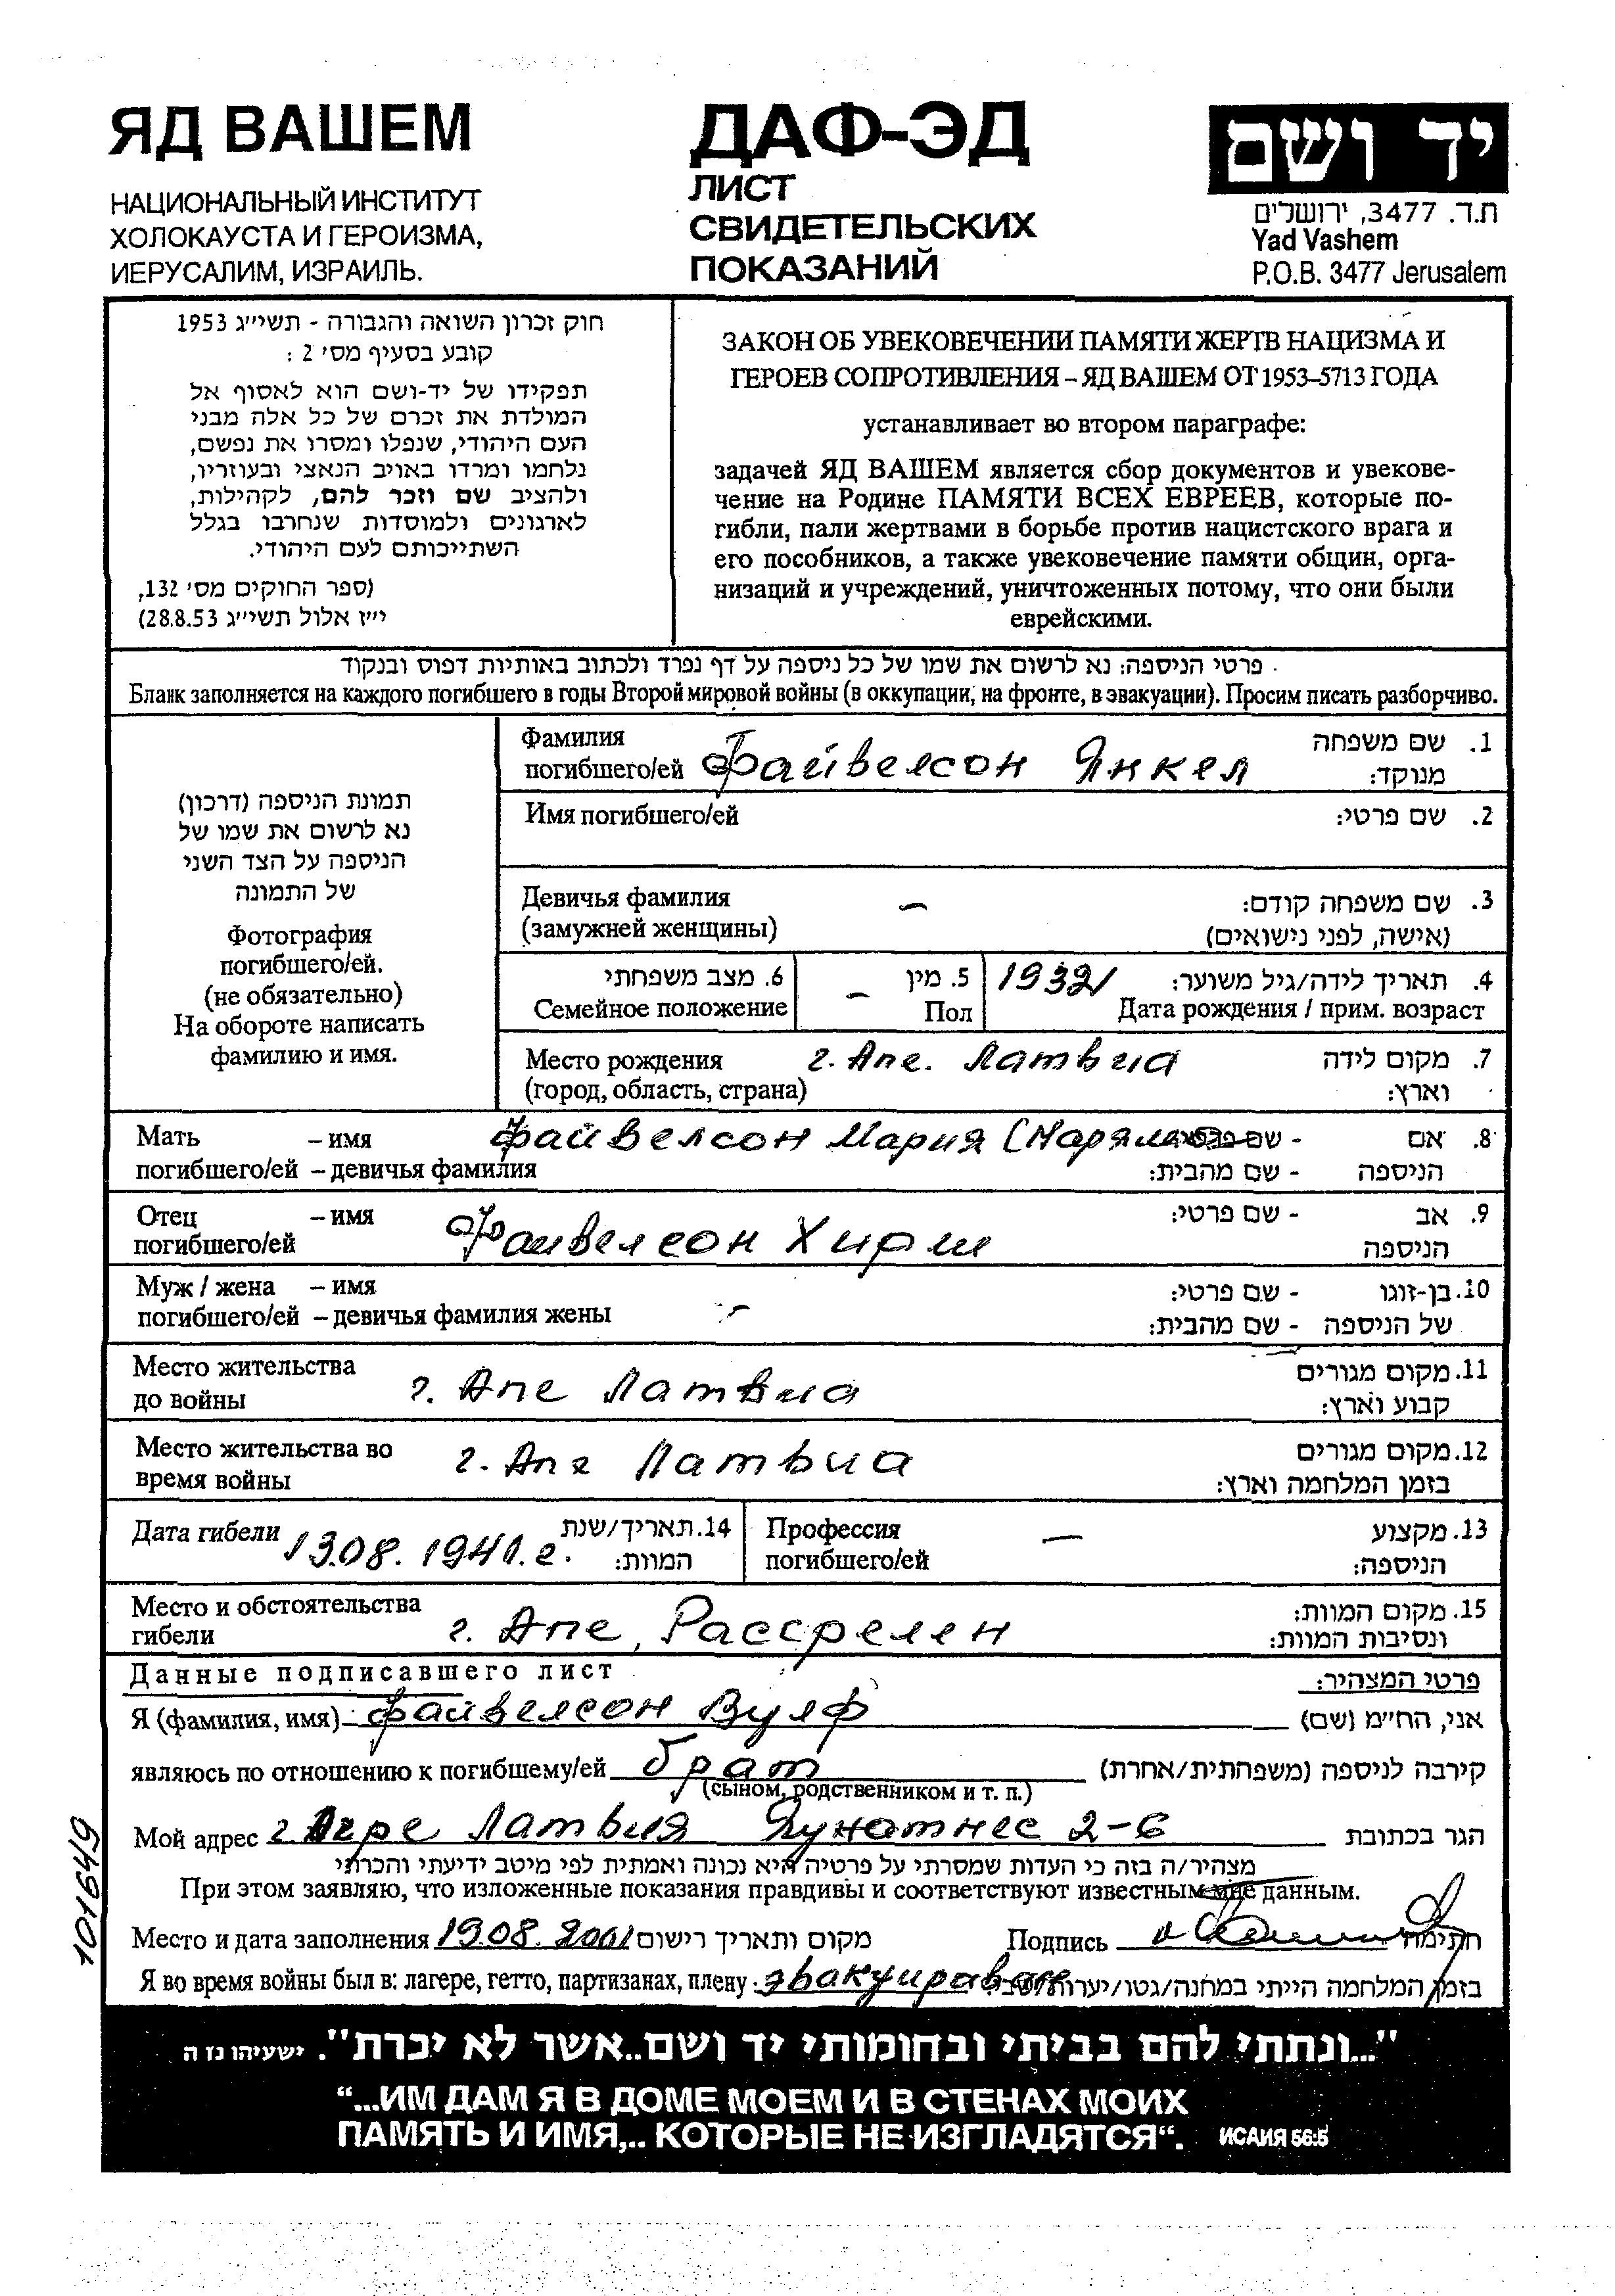 ЯД ВАШЕМ
НАЦИОНАЛЬНЫЙ ИНСТИТУТ
ХОЛОКАУСТА И ГЕРОИЗМА,
ИЕРУСАЛИМ, ИЗРАИЛЬ.
ДАФ-ЭД
ЛИСТ
СВИДЕТЕЛЬСКИХ
ПОКАЗАНИЙ
יד ושם
ת.ד. 3477, ירושלים
Yad Vashem
P.O.B. 3477 Jerusalem
חוק זכרון השואה והגבורה - תשי״ג 1953
קובע בסעיף מס׳ 2 :
תפקידו של יד-ושם הוא לאסוף אל
המולדת את זכרם של כל אלה מבני
העם היהודי, שנפלו ומסרו את נפשם,
נלחמו ומרדו באויב הנאצי ובעוזריו,
ולהציב שם וזכר להם, לקהילות,
לארגונים ולמוסדות שנחרבו בגלל
השתייכותם לעם היהודי.
(ספר החוקים מס׳ 132,
י״ז אלול תשי״ג 28.8.53)
ЗАКОН ОБ УВЕКОВЕЧЕНИИ ПАМЯТИ ЖЕРТВ НАЦИЗМА И
ГЕРОЕВ СОПРОТИВЛЕНИЯ – ЯД ВАШЕМ ОТ 1953–5713 ГОДА
устанавливает во втором параграфе:
задачей ЯД ВАШЕМ является сбор документов и увекове-
чение на Родине ПАМЯТИ ВСЕХ ЕВРЕЕВ, которые по-
гибли, пали жертвами в борьбе против нацистского врага и
его пособников, а также увековечение памяти общин, орга-
низаций и учреждений, уничтоженных потому, что они были
еврейскими.
פרטי הניספה: נא לרשום את שמו של כל ניספה על דף נפרד ולכתוב באותיות דפוס ובנקוד
Бланк заполняется на каждого погибшего в годы Второй мировой войны (в оккупации, на фронте, в эвакуации). Просим писать разборчиво.
תמונת הניספה (דרכון)
נא לרשום את שמו של
הניספה על הצד השני
של התמונה
Фотография
погибшего/ей.
(не обязательно)
На обороте написать
фамилию и имя.
Фамилия 1. שם משפחה
погибшего/ей Файвелсон Янкел מנוקד:
Имя погибшего/ей 2. שם פרטי:
Девичья фамилия – 3. שם משפחה קודם:
(замужней женщины) (אישה, לפני נישואים)
6. מצב משפחתי – 5. מין 1932 4. תאריך לידה/גיל משוער:
Семейное положение Пол Дата рождения / прим. возраст
Место рождения г. Апе. Латвиа 7. מקום לידה
(город, область, страна) וארץ:
Мать – имя Файвелсон Мария 8. אם - שם פרטי
погибшего/ей – девичья фамилия הניספה - שם מהבית:
Отец – имя 9. אב - שם פרטי:
погибшего/ей Файвелсон Хирш הניספה
Муж / жена – имя 10. בן-זוגו - שם פרטי:
погибшего/ей – девичья фамилия жены – של הניספה - שם מהבית:
Место жительства 11. מקום מגורים
до войны г. Апе Латвиа קבוע וארץ:
Место жительства во г. Апе Латвиа 12. מקום מגורים
время войны בזמן המלחמה וארץ:
Дата гибели 13.08.1941.г. 14. תאריך/שנת Профессия – 13. מקצוע
המוות: погибшего/ей הניספה:
Место и обстоятельства 15. מקום המוות:
гибели г. Апе, Рассрелен ונסיבות המוות:
Данные подписавшего лист פרטי המצהיר:
Я (фамилия, имя) Файвелсон Вулф אני, הח״מ (שם)
являюсь по отношению к погибшему/ей брат קירבה לניספה (משפחתית/אחרת)
(сыном, родственником и т. п.)
Мой адрес г. Огре Латвия 2-6 הגר בכתובת
מצהיר/ה בזה כי העדות שמסרתי על פרטיה היא נכונה ואמתית לפי מיטב ידיעתי והכרתי
При этом заявляю, что изложенные показания правдивы и соответствуют известным мне данным.
Место и дата заполнения 19.08.2001 מקום ותאריך רישום Подпись חתימה
Я во время войны был в: лагере, гетто, партизанах, плену эвакуирован בזמן המלחמה הייתי במחנה/גטו/יערות/שבי
1011649
"...ונתתי להם בביתי ובחומותי יד ושם..אשר לא יכרת". ישעיהו נז ה
“...ИМ ДАМ Я В ДОМЕ МОЕМ И В СТЕНАХ МОИХ
ПАМЯТЬ И ИМЯ,.. КОТОРЫЕ НЕ ИЗГЛАДЯТСЯ“. ИСАИЯ 56:5